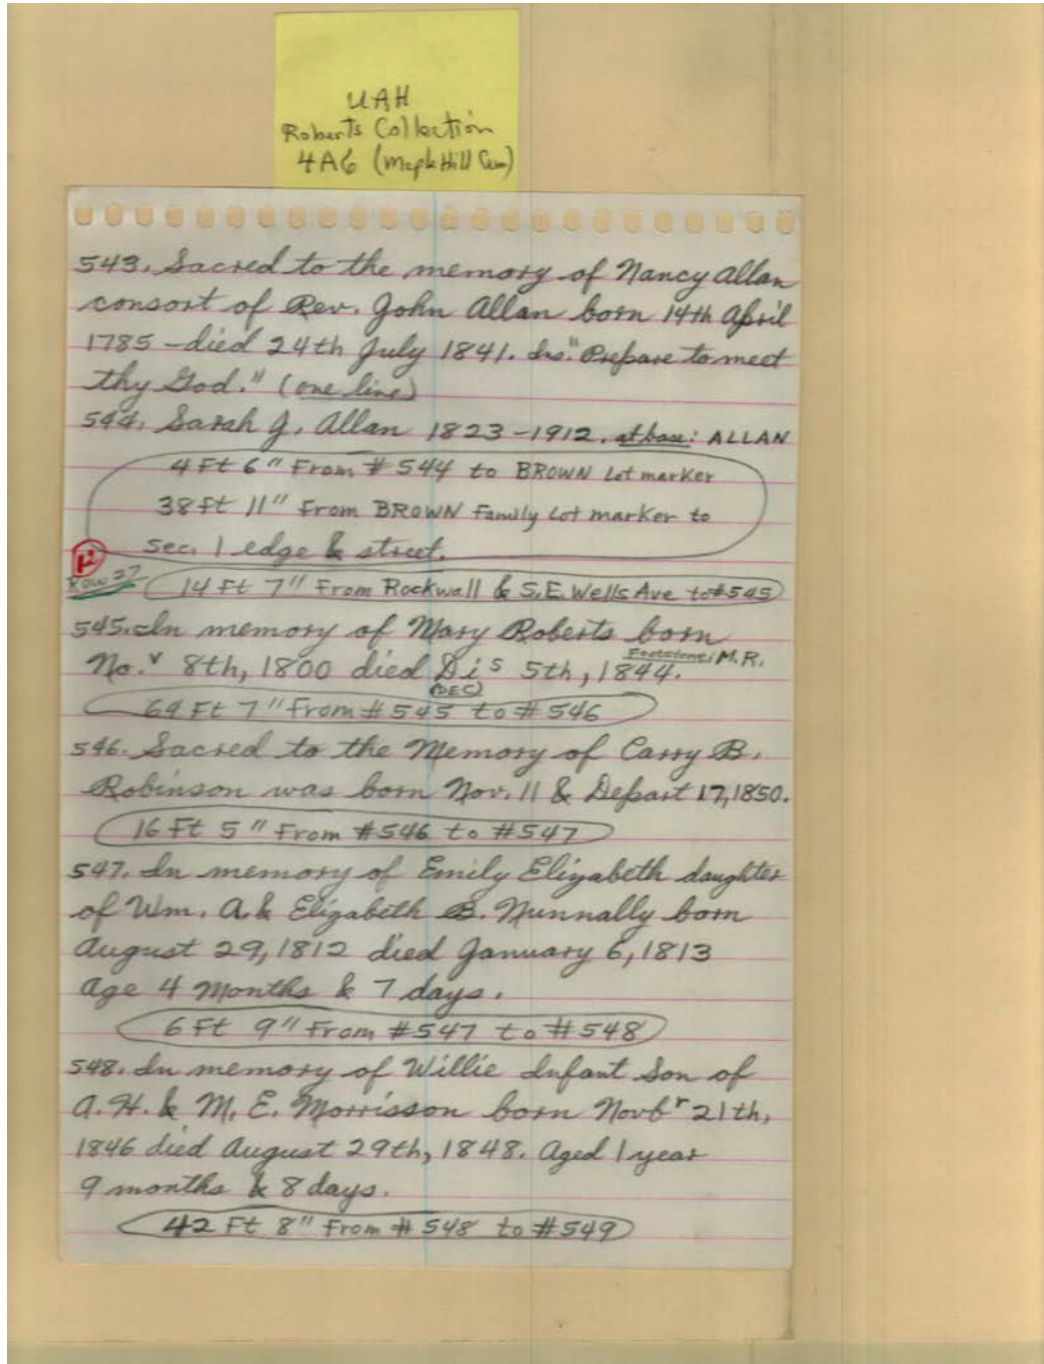 UAH
Roberts Collection
4A6 (Maple Hill Cem)
543. Sacred to the memory of Nancy Allan
consort of Rev. John Allan born 14th April
1785 - died 24th July 1841. Ins: "Prepare to meet
thy God." (one line)
544. Sarah J. Allan 1823-1912. at base: ALLAN
4 Ft 6" From # 544 to BROWN Lot marker
38 Ft 11" From BROWN Family Lot marker to
sec. 1 edge & street.
Row 27
14 Ft 7" From Rockwall & S.E. Wells Ave to #545
545. In memory of Mary Roberts born
No.v 8th, 1800 died Dis 5th, 1844. Footstone: M.R.
(DEC)
69 Ft 7" From #545 to #546
546. Sacred to the Memory of Carry B.
Robinson was born Nov. 11 & Depart 17, 1850.
16 Ft 5" From #546 to #547
547. In memory of Emily Elizabeth daughter
of Wm. A. & Elizabeth B. Nunnally born
August 29, 1812 died January 6, 1813
Age 4 Months & 7 days.
6 Ft 9" From #547 to #548
548. In memory of Willie Infant Son of
A. H. & M. E. Morrisson born Novbr 21th,
1846 died August 29th, 1848. Aged 1 year
9 months & 8 days.
42 Ft 8" From # 548 to #549